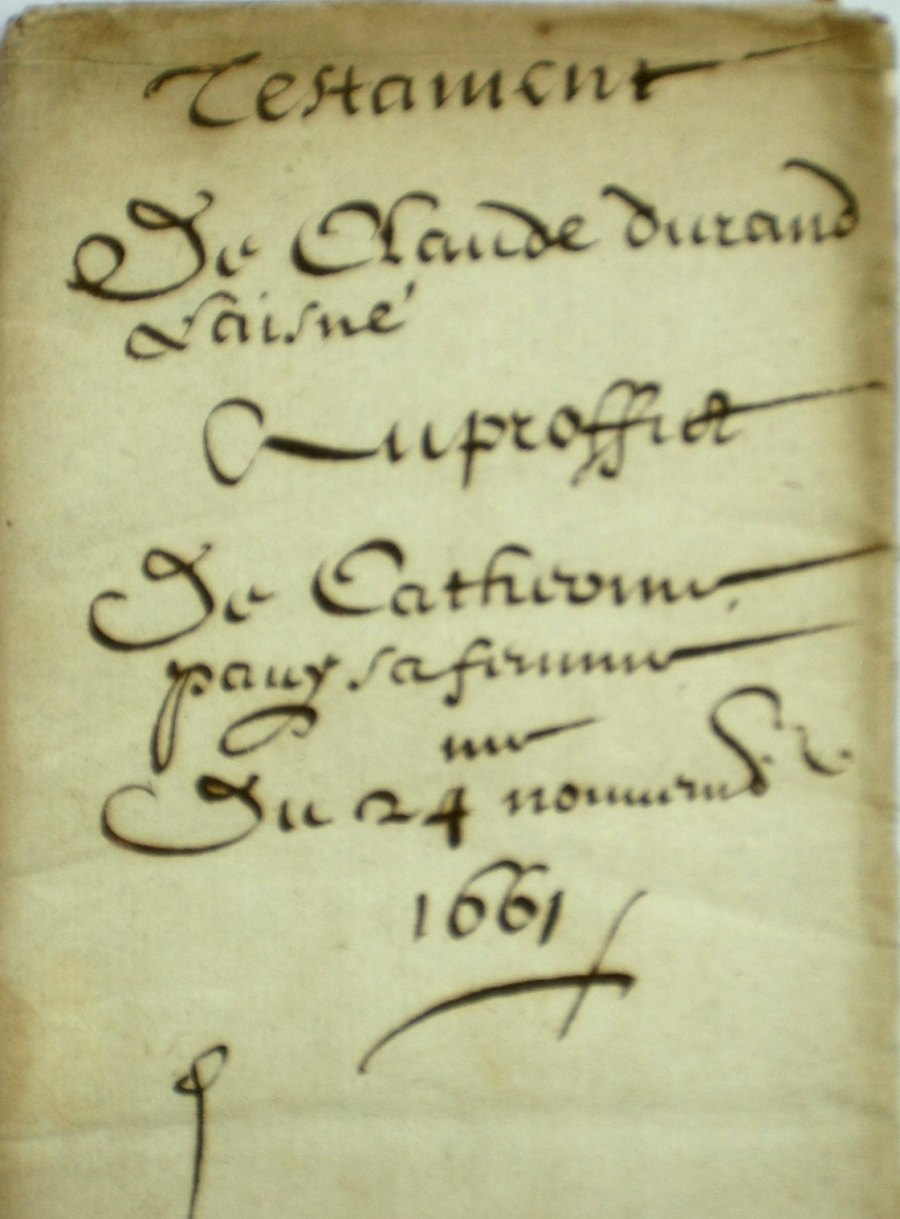 Testament
De Claude durand
Laisné
Auproffict
De Catherine
pauy sa femme
me
Du 24 nouuemb
1661